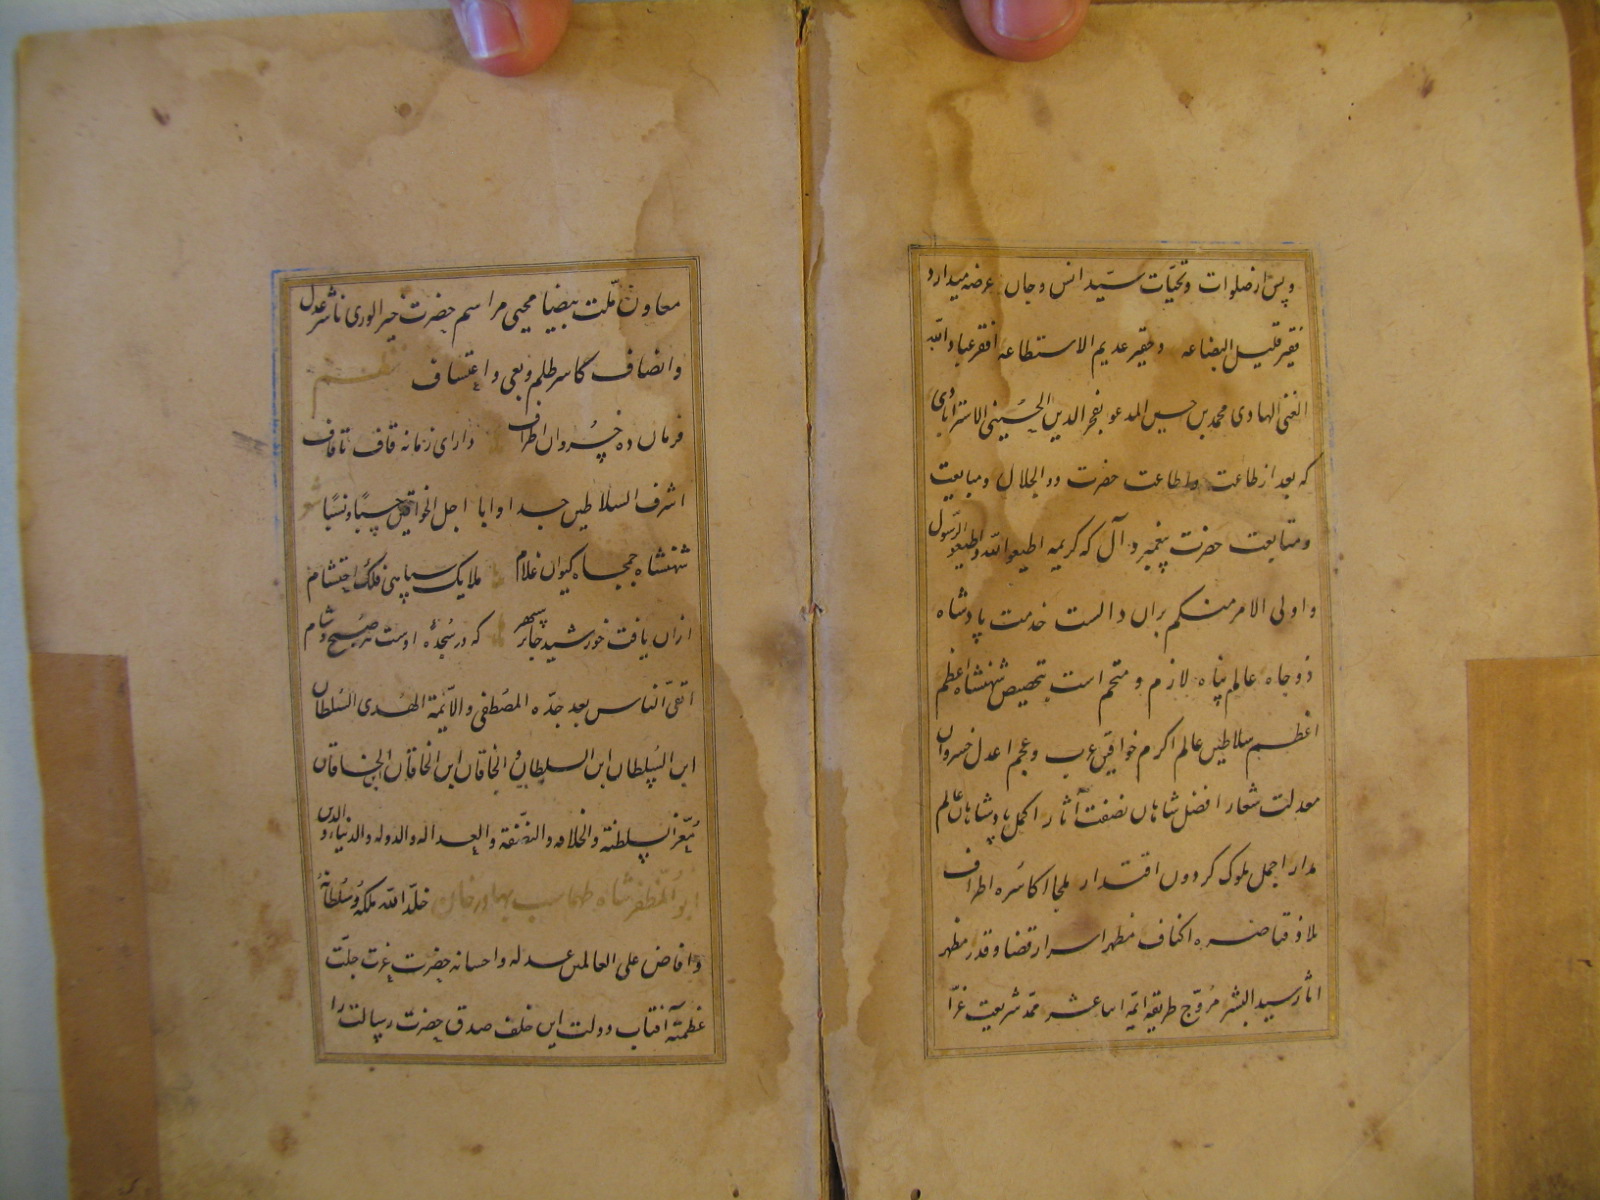 و پس از صلوات و تحیّات سیّد انس و جان عرضه میدارد
فقیر قلیل البضاعه و حقیر عدیم الاستطاعه افقر عباد الله
الغنی الهادی محمد بن حسین المدعو بفخر الدین الحُسینی الاسترابادی
که بعد از طاعت و اطاعت حضرت ذو الجلال و مبایعت
و متابعت حضرت پیغمبر و آل که کریمه اطیعوا الله و اطیعوا الرّسول
و اولی الامر منکم بران دالست خدمت پادشاه
ذو جاه عالم پناه لازم و متحتم است بتخصیص شهنشاه اعظم
اعظم سلاطین عالم اکرم خواقین عرب و عجم اعدل خسروان
معدلت شعار افضل شاهان نصفت آثار اکمل پادشاهان عالم
مدار اجمل ملوک کردون اقتدار ملجا اکاسره اطراف
ملاذ قیاصره اکناف مظهر اسرار قضا و قدر مظهر
اثار سید البشر مُروّج طریقه ایمّه اثناعشر ممّد شریعت غرّا
معاون ملّت بیضیا محیی مراسم حضرت خیر الوری ناشر عدل
و انصاف کاسر ظلم و بغی و اعتساف نظم
فرمان ده خسروان اطراف دارای زمانه قاف تا قاف
اشرف السلاطین جدا و ابا اجل الخواقین حسبًا و نسبًا شعر
شهنشاه جمجاه کیوان غلام ملایک سپاهی فلک احتشام
ازان یافت خورشید جا بر سپهر که در سُجدهٔ اوست هر صُبح و شام
اتقی النّاس بعد جدّه المصُطفی و الائمّة الهُدی السُلطان
ابن السُلطان ابن السلطان و الخاقان ابن الخاقان ابن الخاقان
مُعّز السلطنة و الخلافه و النصّفة و العداله و الدوله و الدنیا و الدین
ابو المُظفر شاه طهماسب بهادر خان خلّد الله ملکه و سُلطانهُ
و افاض علی العالمین عدله و احسانه حضرت عزت جلّت
عظمته آفتاب دولت این خلف صدق حضرت رسالت را